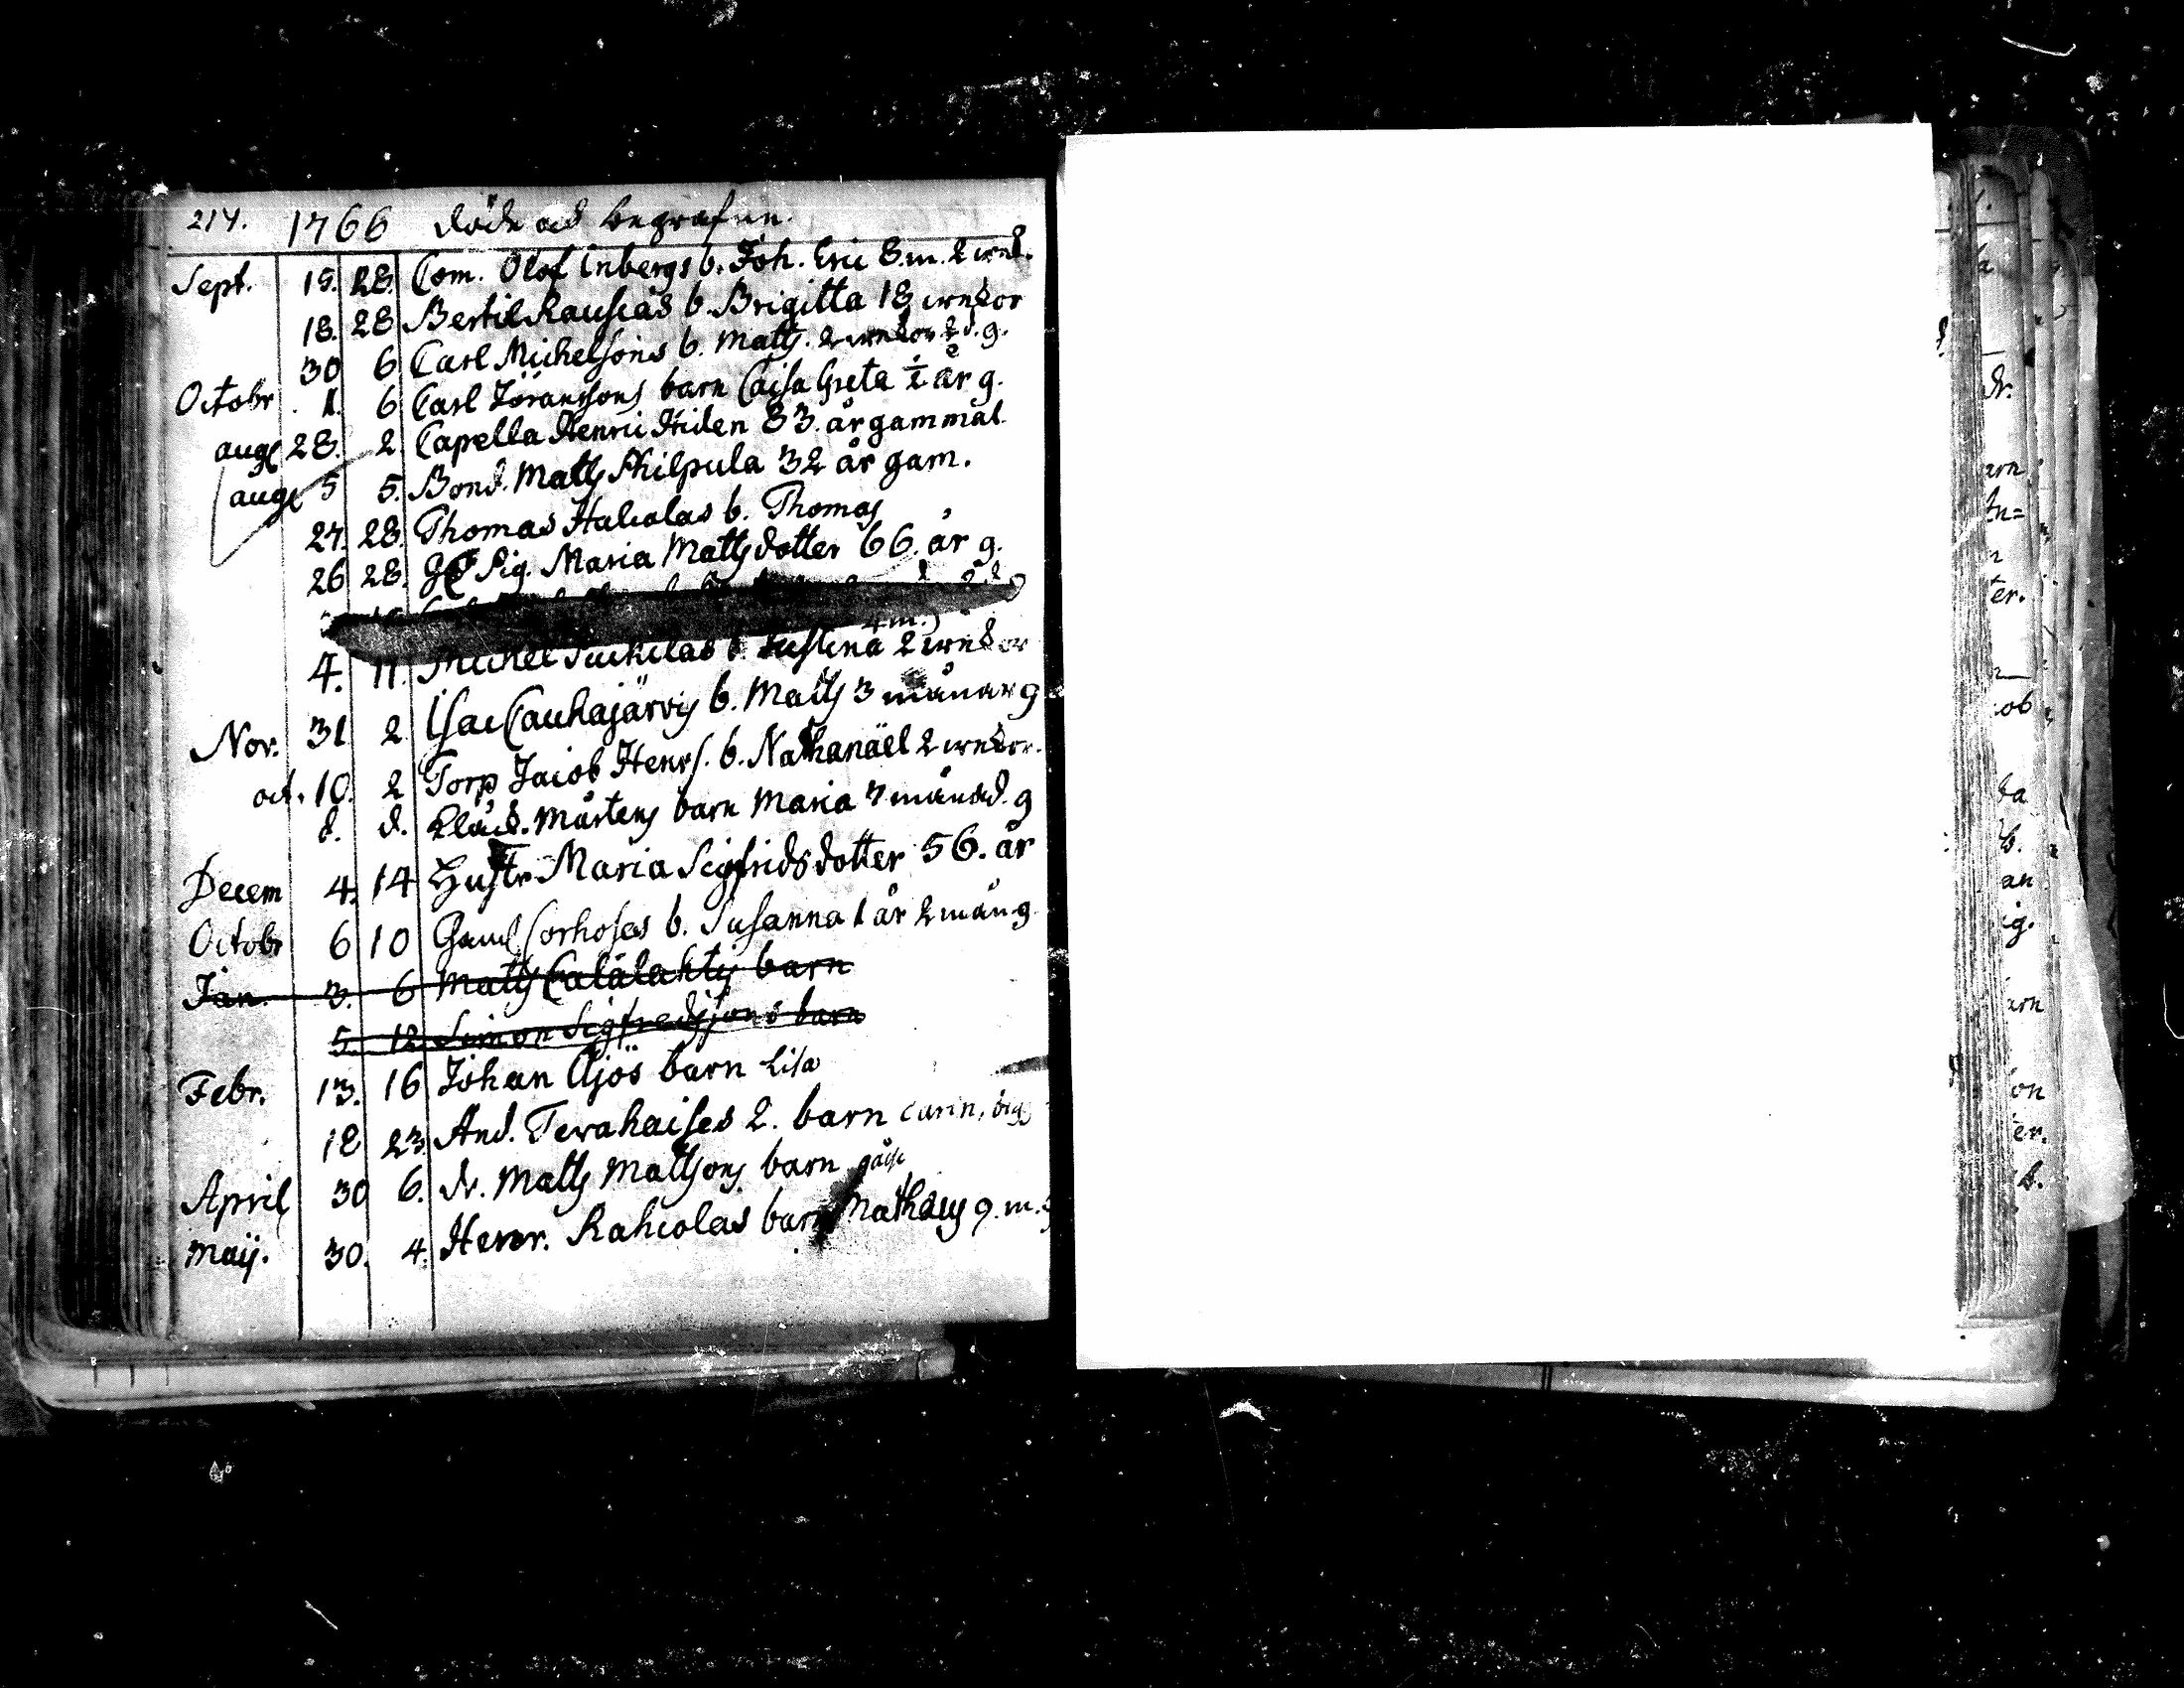 214. 1766 döde och begrafne.
Sept. 19. 28. Com. Olof Enbergs b. Joh. Eric 8. m. 2 wek.
18. 28 Bertil Rauscas b. Brigitta 18 wekor
30 6 Carl Michelsons b. Matts. 2 wekor 2 d. g.
Octobr 1. 6 Carl Jöranssons barn Caisa Greta ½ år g.
aug 28. 2 Capella Henric Hiden 83. år gammal.
aug 5 5. Bond. Matts Philpula 32 år gam.
27. 28. Thomas Hakolas b. Thomas
26 28. Pig. Maria Matts dotter 66. år g.
4 m.
4. 11. Michel b. Justina 2 wekor
Nov. 31 2 Isac Cauhajärvis b. Matts 3 månar g
oct. 10. 2 Torp Jacob Henrs. b. Nathanäel 2 wekor.
d. d. Mårtens barn Maria 7 månad. g
Decem 4. 14 Hustr Maria Sigfrids dotter 56. år
Octobr 6 10 Corhoses b. Susanna 1 år 2 mån g
Jan. 3. 6 Matts Calälahtis barn
5. 12. Simon Sigfredssons barn
Febr. 13. 16 Johan Ojös barn Lisa
18 23 And. Tervahaises 2. barn Carin,
April 30 6. dr. Matts Matssons barn
Maij. 30. 4. Henr. Rahcolas barn Mathæus 9. m.